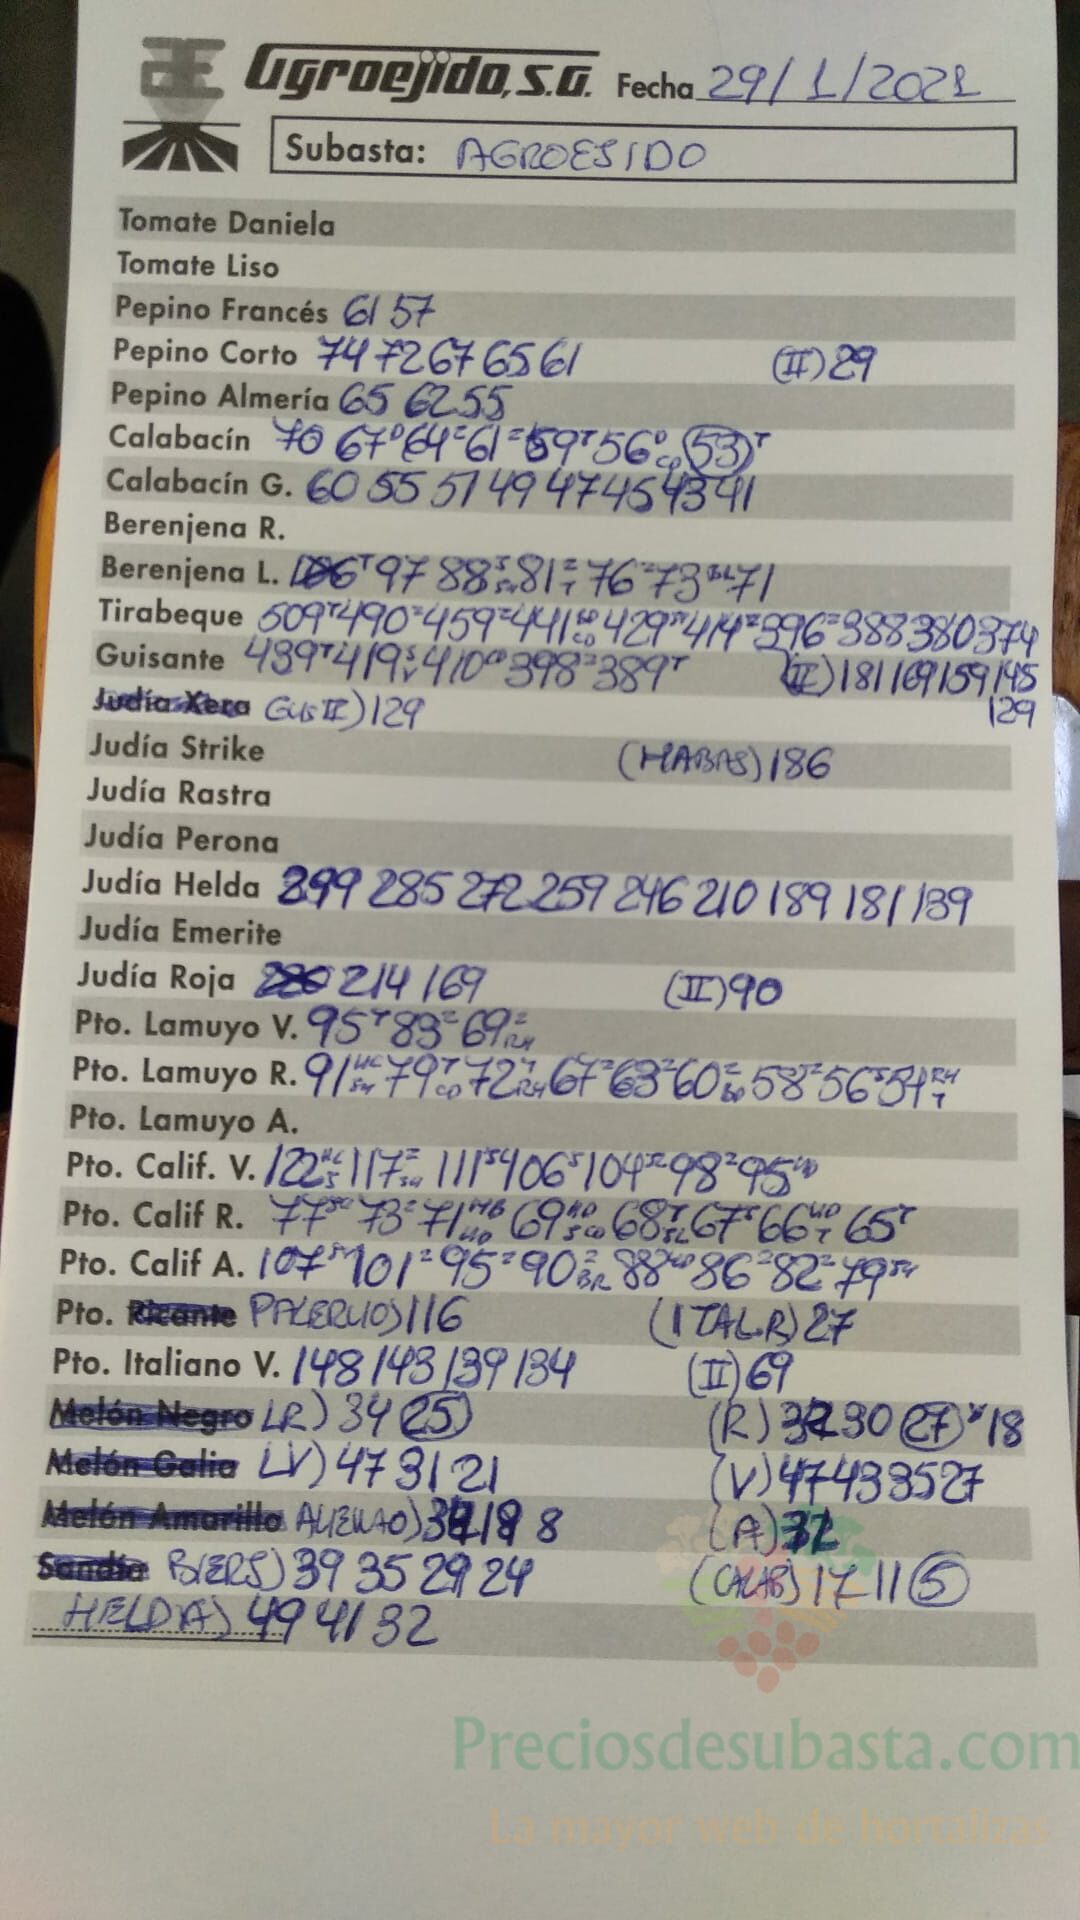 Agroejido, S.A. Fecha 29/1/2021
Subasta: AGROEJIDO
Tomate Daniela
Tomate Liso
Pepino Francés 61 57
Pepino Corto 74 72 67 65 61 (II) 29
Pepino Almería 65 62 55
Calabacín 70 67 64 61 59 56 53
Calabacín G. 60 55 51 49 47 45 43 41
Berenjena R.
Berenjena L. 97 88 81 76 73 71
Tirabeque 509 490 459 441 429 414 396 388 380 374
Guisante 439 419 410 398 389 (II) 181 169 159 145
129
Judía Xera GUIS II) 129
Judía Strike (HABAS) 186
Judía Rastra
Judía Perona
Judía Helda 299 285 272 259 246 210 189 181 139
Judía Emerite
Judía Roja 214 169 (II) 90
Pto. Lamuyo V. 95 83 69
Pto. Lamuyo R. 91 79 72 67 63 60 58 56 54
Pto. Lamuyo A.
Pto. Calif. V. 122 117 111 106 104 98 95
Pto. Calif R. 77 73 71 69 68 67 66 65
Pto. Calif A. 107 101 95 90 88 86 82 79
Pto. Picante PALERMO) 116 (ITAL R) 27
Pto. Italiano V. 148 143 139 134 (II) 69
Melón Negro LR) 34 25 (R) 30 27 18
Melón Galia LV) 47 31 21 (V) 47 43 35 27
Melón Amarillo 8 (A)
Sandía 39 35 29 24 (CALAB) 17 11 5
HELDA) 49 41 32
Preciosdesubasta.com
La mayor web de hortalizas